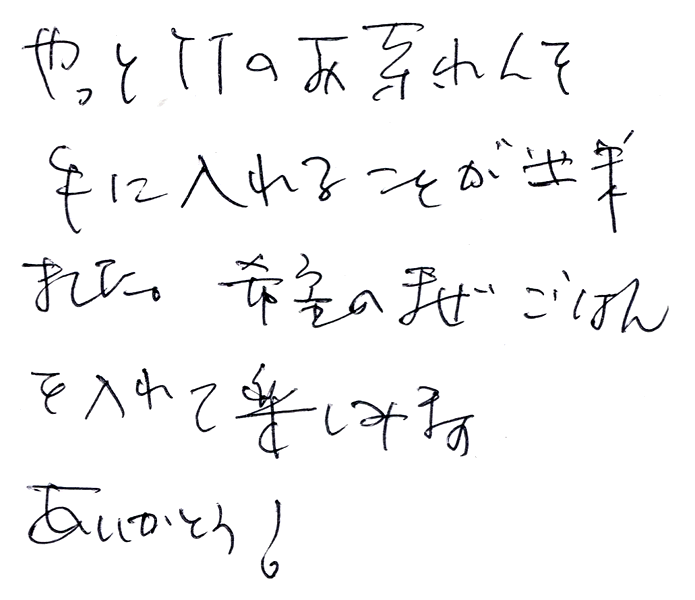 やっと のお茶わんを
手に入れることが出来
ました。希望のまぜごはん
を入れて楽しみます
ありがとう!